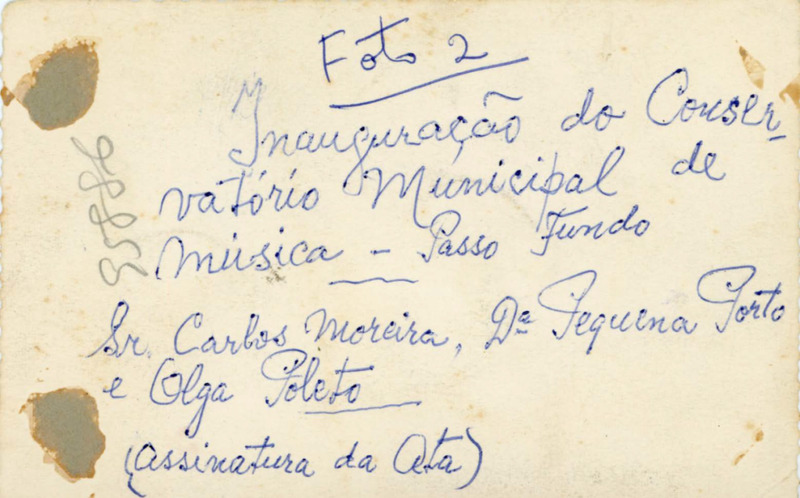 Foto 2
Inauguração do Conser-
vatório Múnicipal de
Música - Passo Fundo
Sr. Carlos Moreira, Dª Pequena Porto
e Olga Poleto
(Assinatura da Ata)